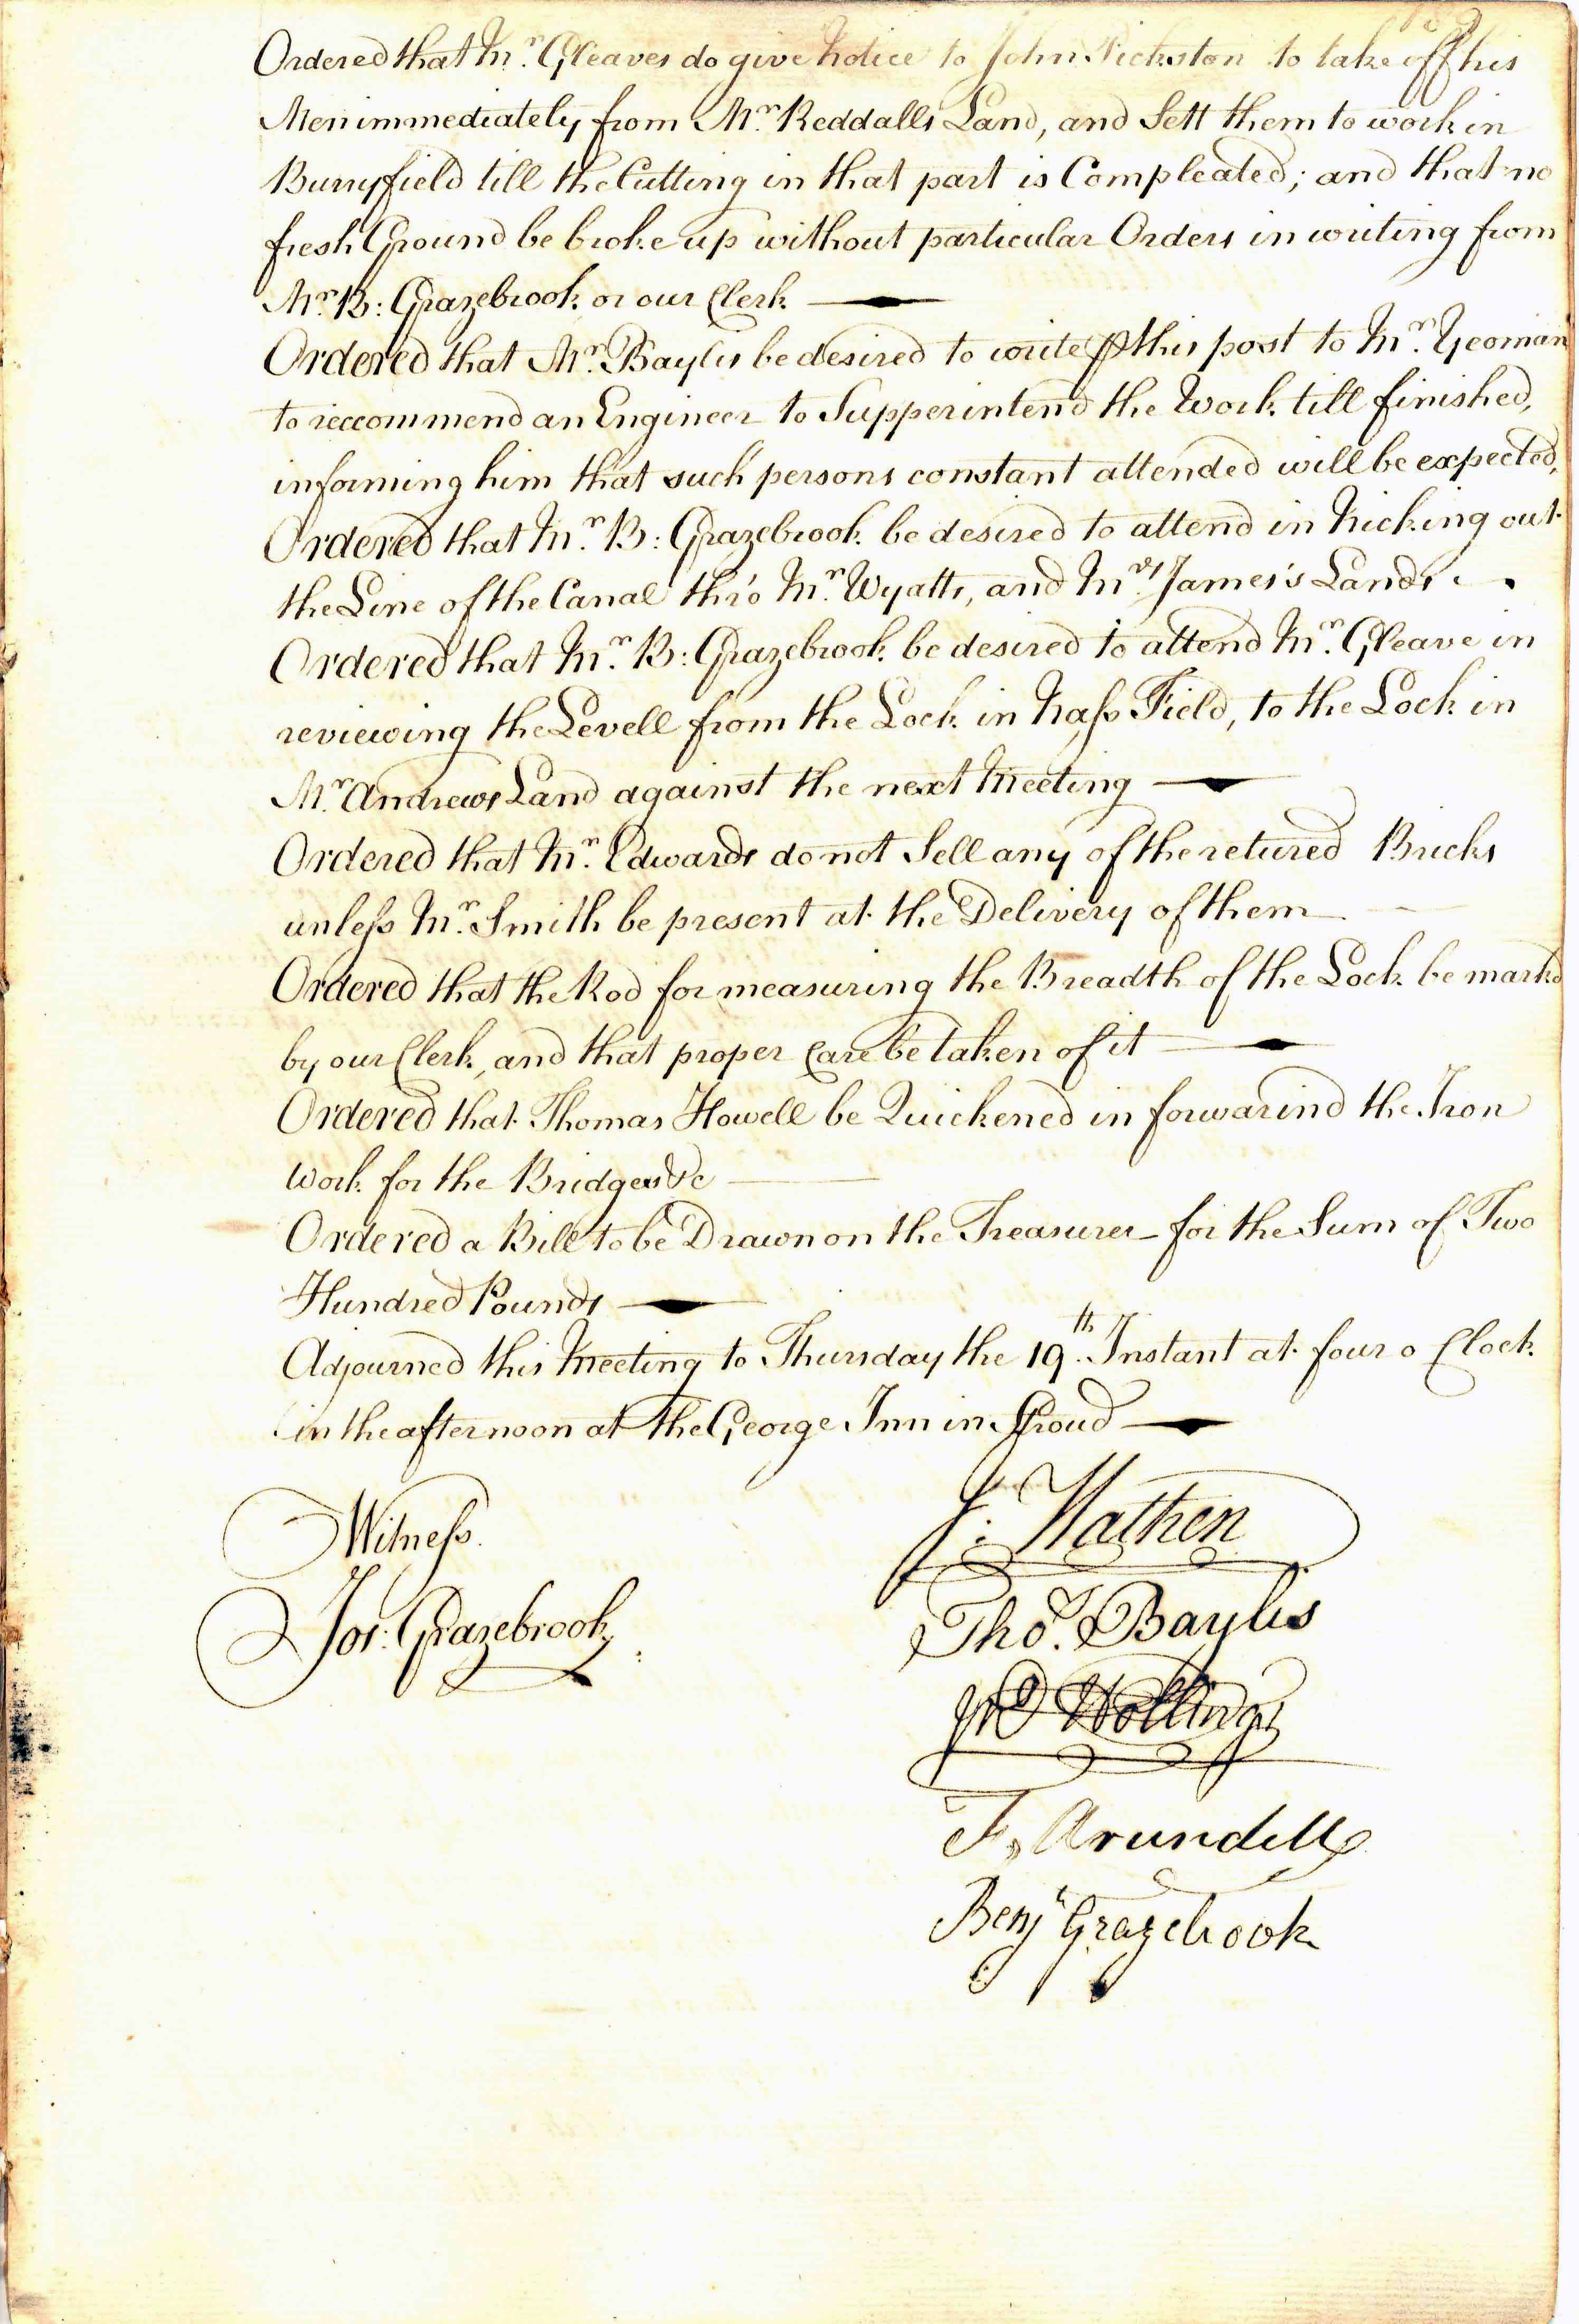 Ordered that Mr. Gleaves do give Notice to John Pickston to take off his
Men immediately from Mr. Reddalls Land, and Sett them to work in
Burryfield till the Cutting in that part is Compleated; and that no
fresh Ground be broke up without particular Orders in writing from
Mr. B: Grazebrook or our Clerk
Ordered that Mr. Baylis be desired to write ⅌ this post to Mr. Yeoman
to reccommend an Engineer to Supperintend the Work till finished,
informing him that such persons constant attended will be expected,
Ordered that Mr. B: Grazebrook be desired to attend in Nicking out
the Line of the Canal thro' Mr. Wyatts, and Mrs. James's Lands
Ordered that Mr. B: Grazebrook be desired to attend Mr. Gleave in
reviewing the Levell from the Lock in Nass Field, to the Lock in
Mr. Andrews Land against the next Meeting
Ordered that Mr. Edwards do not Sell any of the retured Bricks
unless Mr. Smith be present at the Delivery of them
Ordered that the Rod for measuring the Breadth of the Lock be markd
by our Clerk, and that proper Care be taken of it
Ordered that Thomas Howell be Quickened in forwarind the Iron
work for the Bridges &c
Ordered a Bill to be Drawn on the Treasurer for the Sum of Two
Hundred Pounds
Adjourned this Meeting to Thursday the 19th. Instant at four o Clock
in the afternoon at the George Inn in Stroud
Witness.
Jos: Grazebrook
J: Hathen
Thos. Baylis
Jno Hollings
F, Arundell
Benj Grazebrook